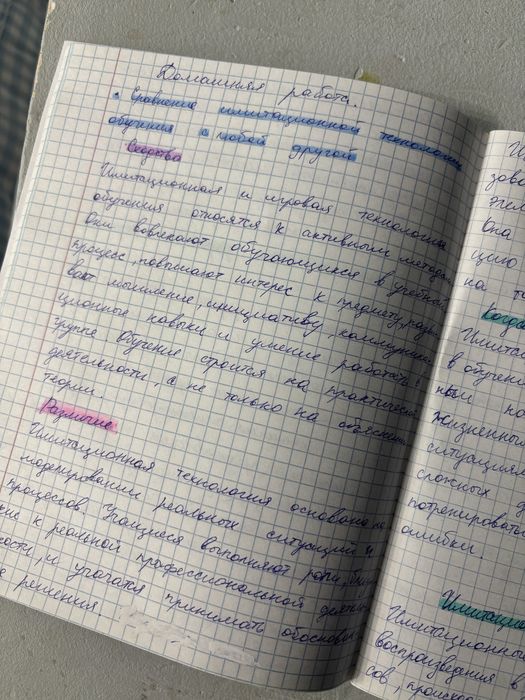 Домашняя работа.
• Сравнение имитационной технологии
обучения с любой другой
Сходства
Имитационная и игровая технология
обучения относятся к активным методам
Они вовлекают обучающихся в учебный
процесс, повышают интерес к предмету,
вают мышление, инициативу,
ционные навыки и умение работать в
группе. Обучение строится на практической
деятельности, а не только на объяснении
теории.
Различие
Имитационная технология основана на
моделировании реальных ситуаций и
процессов. Учащиеся выполняют роли,
к реальной профессиональной
и учатся принимать
решения
на
Когда
в обучении
жизненным
ситуациям
сложных
потренировать
ошибки.
Имитацио
Имитационны
воспроизведения в
сов